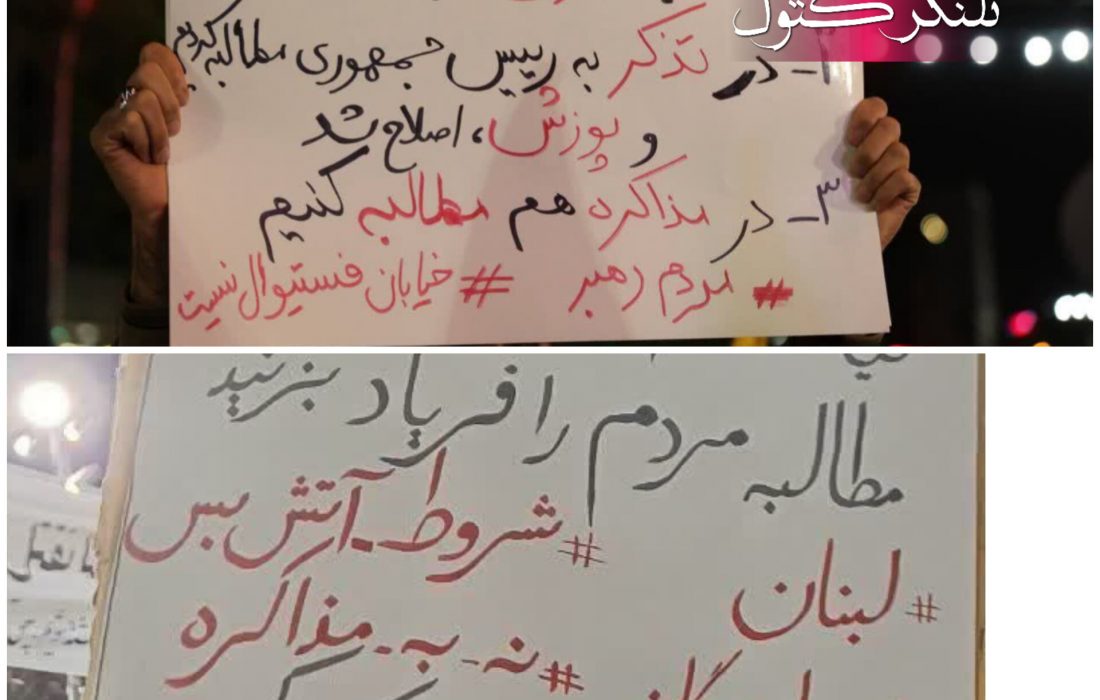 تلنگر کتول
۲- در تذکر به رییس جمهوری مطالبه کردیم
و پوزش، اصلاح شد
۳- در مذاکره هم مطالبه کنیم
# مردم رهبر # خیابان فستیوال نیست
مطالبه مردم را فریاد بزنید
#شروط_آتش بس
#لبنان
#نه_به_مذاکره